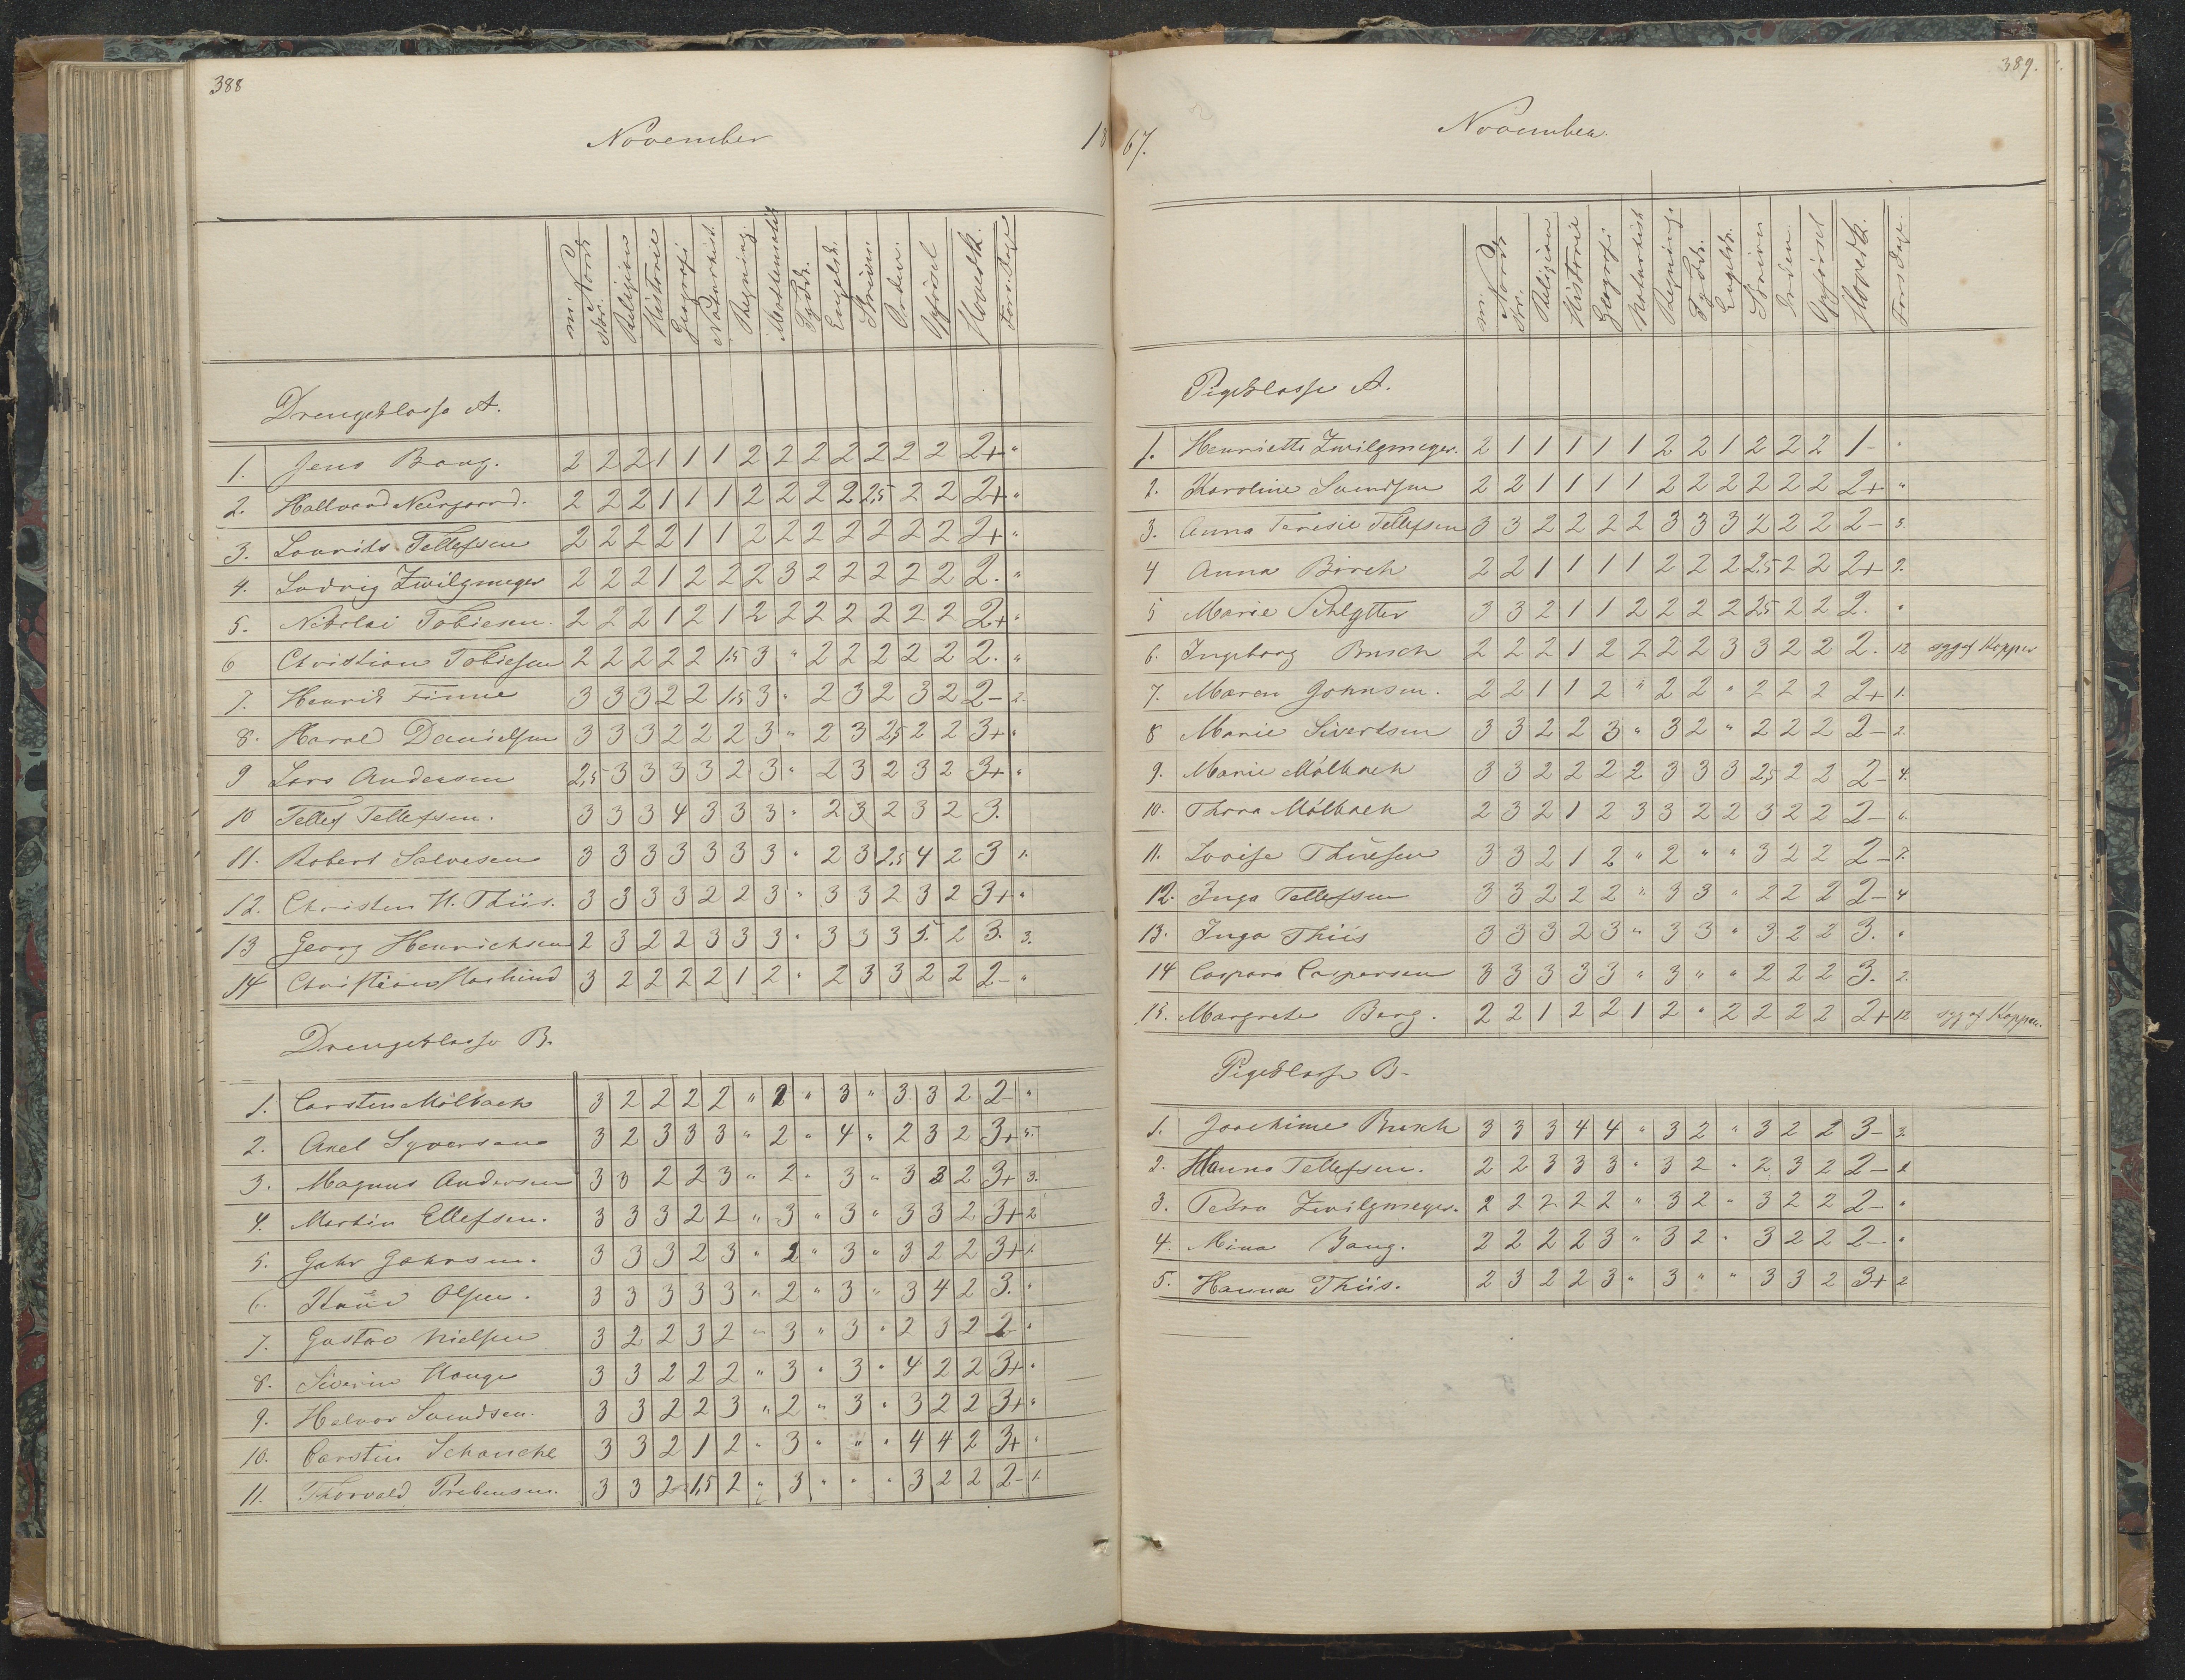 388
November 18
mi. Norsk Nor. Religion Historie Geografi Naturhist. Regning. Mathematik Tydsk. Engelsk. Skrivn. Orden. Opførsel Hovedk. Fors. Dage
Drengeklasse A.
1. Jens Bang. 2 2 2 1 1 1 2 2 2 2 2 2 2 2+ "
2. Hallvard Neergaard. 2 2 2 1 1 1 2 2 2 2 2,5 2 2 2+ "
3. Laurits Tellefsen 2 2 2 2 1 1 2 2 2 2 2 2 2 2+ "
4. Ludvig Zwilgmeyer 2 2 2 1 2 2 2 3 2 2 2 2 2 2. "
5. Nikolai Tobiesen. 2 2 2 1 2 1 2 2 2 2 2 2 2 2+ "
6 Christian Tobiesen 2 2 2 2 2 1,5 3 " 2 2 2 2 2 2. "
7. Henrik Finne 3 3 3 2 2 1,5 3 " 2 3 2 3 2 2- 2.
8. Harald Danielsen 3 3 3 2 2 2 3 " 2 3 2,5 2 2 3+ "
9 Lars Andersen 2,5 3 3 3 3 2 3 " 2 3 2 3 2 3+ "
10 Tellef Tellefsen. 3 3 3 4 3 3 3 " 2 3 2 3 2 3.
11. Robert Salvesen 3 3 3 3 3 3 3 " 2 3 2,5 4 2 3 1.
12. Christen H. Thiis. 3 3 3 3 2 2 3 " 3 3 2 3 2 3+ "
13 Georg Henrichsen 2 3 2 2 3 3 3 " 3 3 3 5. 2 3. 3.
14 Christian 3 2 2 2 2 1 2 " 2 3 3 2 2 2- "
Drengeklasse B.
1. Carsten Mölbach 3 2 2 2 2 " 2 " 3 " 3 3 2 2- "
2. Axel Syversen 3 2 3 3 3 " 2 " 4 " 2 3 2 3+ 5.
3. Magnus Andersen 3 3 2 2 3 " 2 " 3 " 3 3 2 3+ 3.
4. Martin Ellefsen. 3 3 3 2 2 " 3 " 3 " 3 3 2 3+ 2
5. Gahr Gahrsen. 3 3 3 2 3 " 2 " 3 " 3 2 2 3+ 1.
6. Knud Olsen. 3 3 3 3 3 " 2 " 3 " 3 4 2 3. "
7. Gustav Nielsen 3 2 2 3 2 " 3 " 3 " 2 3 2 2- "
8. Siverin Hauge 3 3 2 2 2 " 3 " 3 " 4 2 2 3+ "
9. Halvor Svendsen. 3 3 2 2 3 " 2 " 3 " 3 2 2 3+ "
10. Carsten Schanche 3 3 2 1 2 " 3 " " " 4 4 2 3+ "
11. Thorvald Prebensen. 3 3 2 1,5 2 " 3 " " " 3 2 2 2- 1.
389.
67. November.
mi. Norsk Nr. Religion Historie Geografi Naturhist Regning. Tydsk. Engelsk. Skrivn Orden. Opførsel Hovedk. Fors Dage.
Pigeklasse A.
1. Henriette Zwilgmeyer. 2 1 1 1 1 1 2 2 1 2 2 2 1- "
2. Karoline Svendsen 2 2 1 1 1 1 2 2 2 2 2 2 2+ "
3. Anna Teresie Tellefsen 3 3 2 2 2 2 3 3 3 2 2 2 2- 3.
4 Anna Birch 2 2 1 1 1 1 2 2 2 2,5 2 2 2+ 2.
5 Marie Schlytter 3 3 2 1 1 2 2 2 2 2,5 2 2 2. "
6. Ingeborg Busch 2 2 2 1 2 2 2 2 3 3 2 2 2. 12 syg af Kopper
7. Maren Johnsen. 2 2 1 1 2 " 2 2 " 2 2 2 2+ 1.
8 Marie Sivertsen 3 3 2 2 3 " 3 2 " 2 2 2 2- 2.
9. Marie Mölbach 3 3 2 2 2 2 3 3 3 2,5 2 2 2- 4.
10. Thora Mölbach 2 3 2 1 2 3 3 2 2 3 2 2 2- 6.
11. Lovise Thuesen 3 3 2 1 2 " 2 " " 3 2 2 2- 7.
12. Inga Tellefsen 3 3 2 2 2 " 3 3 " 2 2 2 2- 4
13. Inga Thiis 3 3 3 2 3 " 3 3 " 3 2 2 3. "
14 Caspara Caspersen 3 3 3 3 3 " 3 " " 2 2 2 3. 2.
15. Margrete Berg. 2 2 1 2 2 1 2 " 2 2 2 2 2+ 12 syg af Kopper.
Pigeklasse B.
1. Joachime Busch 3 3 3 4 4 " 3 2 " 3 2 2 3- 3.
2. Hanna Tellefsen. 2 2 3 3 3 " 3 2 " 2 3 2 2- 2.
3. Petra Zwilgmeyer. 2 2 2 2 2 " 3 2 " 3 2 2 2- "
4. Mina Bang. 2 2 2 2 3 " 3 2 " 3 2 2 2- "
5. Hanna Thiis. 2 3 2 2 3 " 3 " " 3 3 2 3+ 2